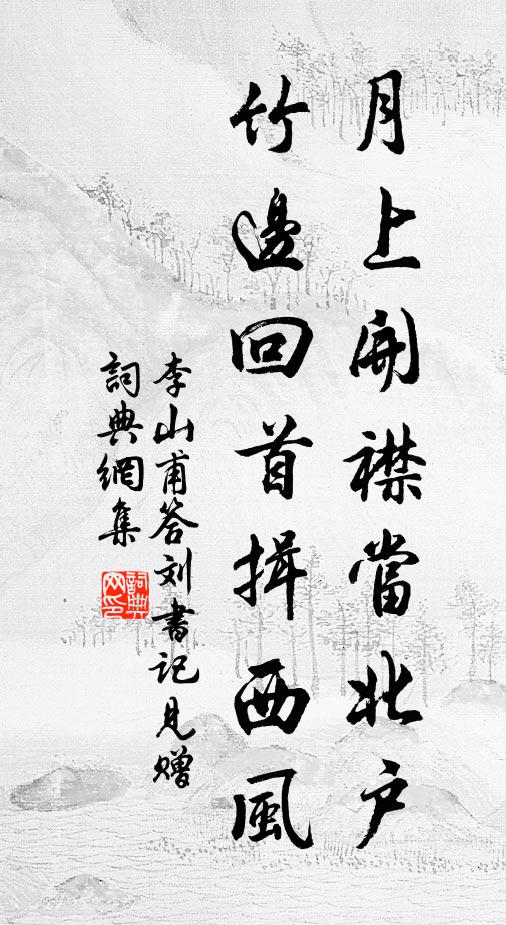 月上開襟當北户
竹邊回首揖西風
李山甫答刘書記見赠
詞典網集
詞典網印